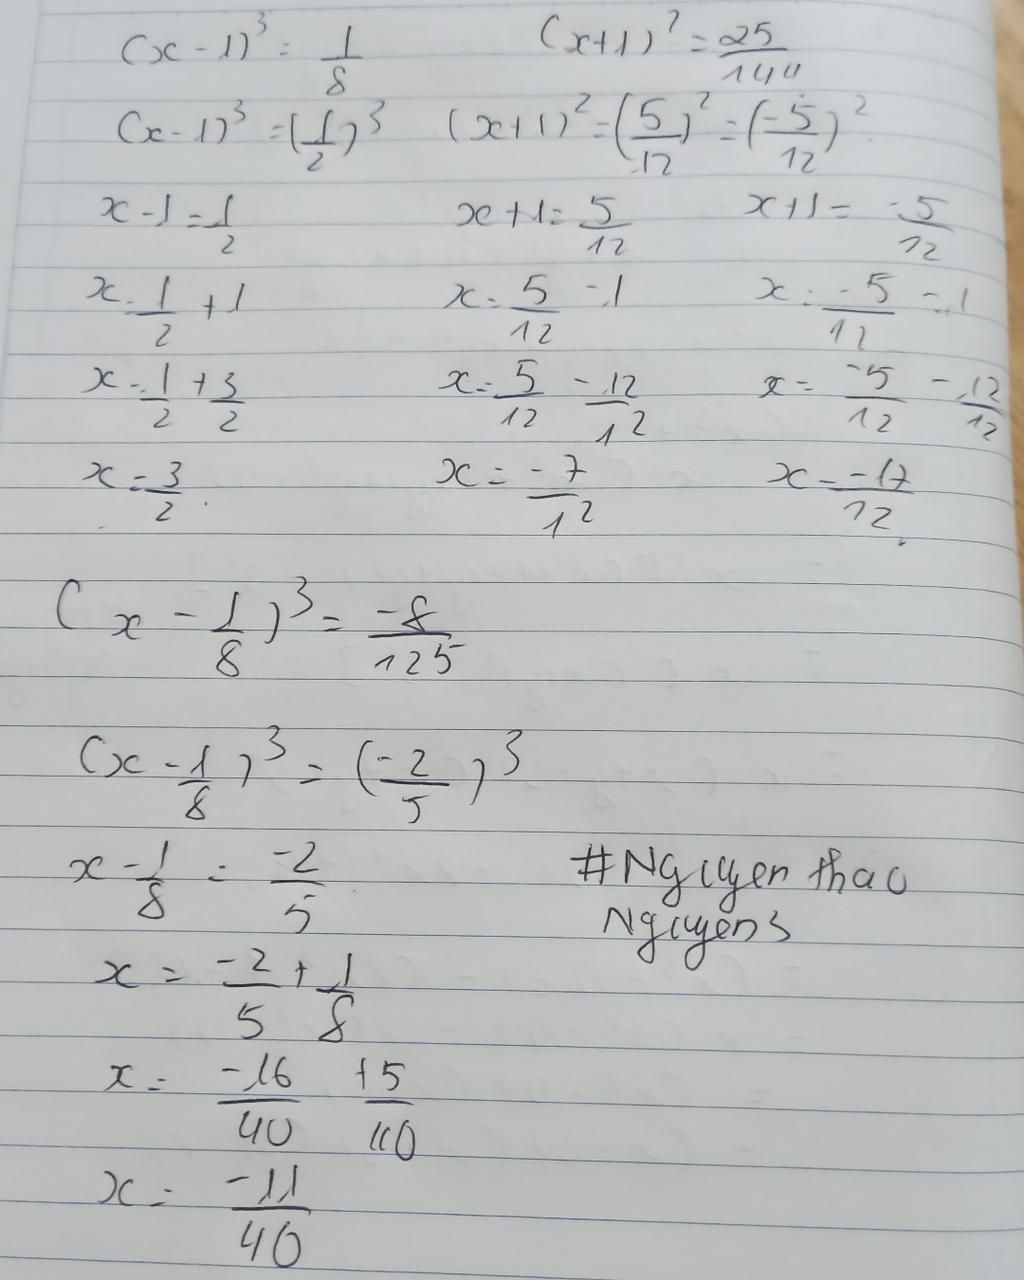 (x - 1)³ = 1/8
(x - 1)³ = (1/2)³
x - 1 = 1/2
x = 1/2 + 1
x = 1/2 + 3/2
x = 3/2
(x + 1)² = 25/144
(x + 1)² = (5/12)² = (-5/12)²
x + 1 = 5/12
x = 5/12 - 1
x = 5/12 - 12/12
x = -7/12
x + 1 = -5/12
x = -5/12 - 1
x = -5/12 - 12/12
x = -17/12
(x - 1/8)³ = -8/125
(x - 1/8)³ = (-2/5)³
x - 1/8 = -2/5
x = -2/5 + 1/8
x = -16/40 + 5/40
x = -11/40
#Nguyen thao
Nguyen3